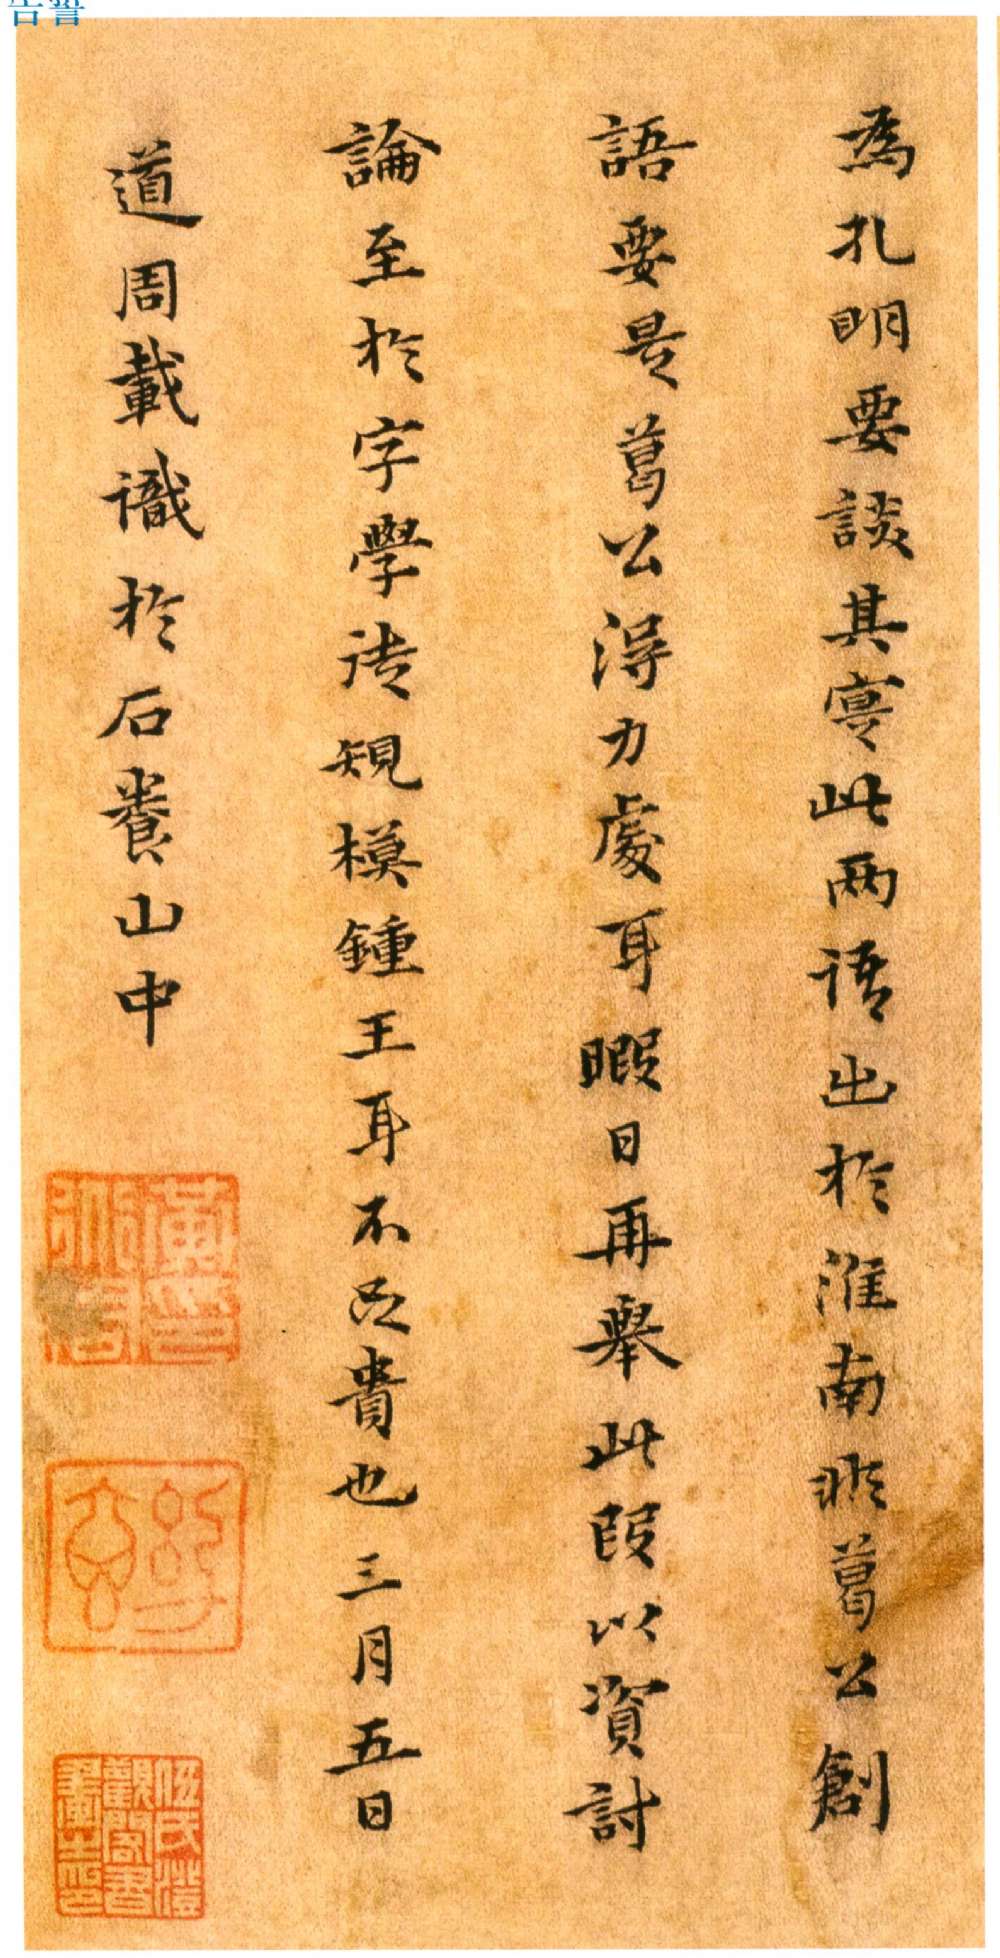 告誓
為孔明要談其實此兩語出於淮南非葛公創
語要是葛公得力處耳暇日再舉此段以資討
論至於字學法規模鍾王耳不足貴也三月五日
道周載識於石養山中